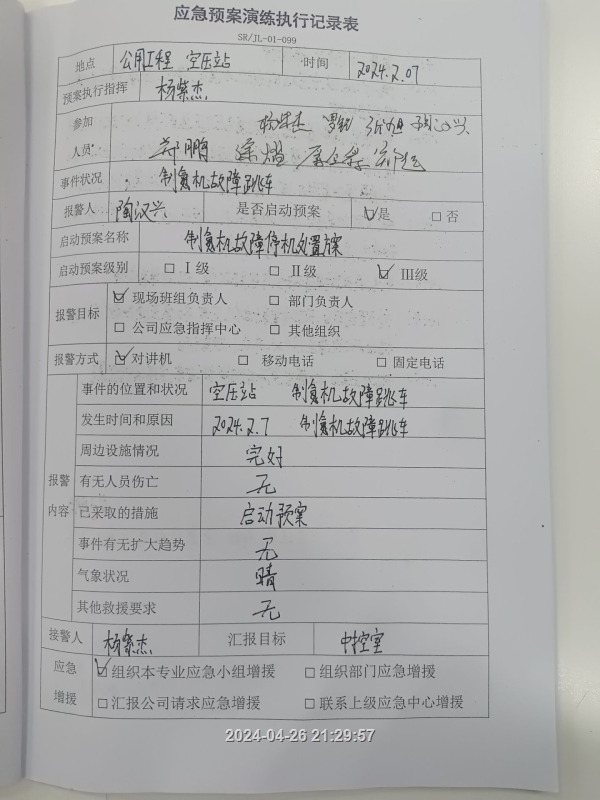 应急预案演练执行记录表
SR/JL-01-099
地点 公用工程 空压站 时间 2024.2.07
预案执行指挥 杨紫杰
参加
人员
事件状况 制氮机故障跳车
报警人 陶汉兴 是否启动预案 ☑是 □否
启动预案名称 制氮机故障停机处置方案
启动预案级别 □Ⅰ级 □Ⅱ级 ☑Ⅲ级
报警目标 ☑现场班组负责人 □部门负责人
□公司应急指挥中心 □其他组织
报警方式 ☑对讲机 □移动电话 □固定电话
报警内容 事件的位置和状况 空压站 制氮机故障跳车
发生时间和原因 2024.2.7 制氮机故障跳车
周边设施情况 完好
有无人员伤亡 无
已采取的措施 启动预案
事件有无扩大趋势 无
气象状况 晴
其他救援要求 无
接警人 杨紫杰 汇报目标 中控室
应急增援 ☑组织本专业应急小组增援 □组织部门应急增援
□汇报公司请求应急增援 □联系上级应急中心增援
2024-04-26 21:29:57